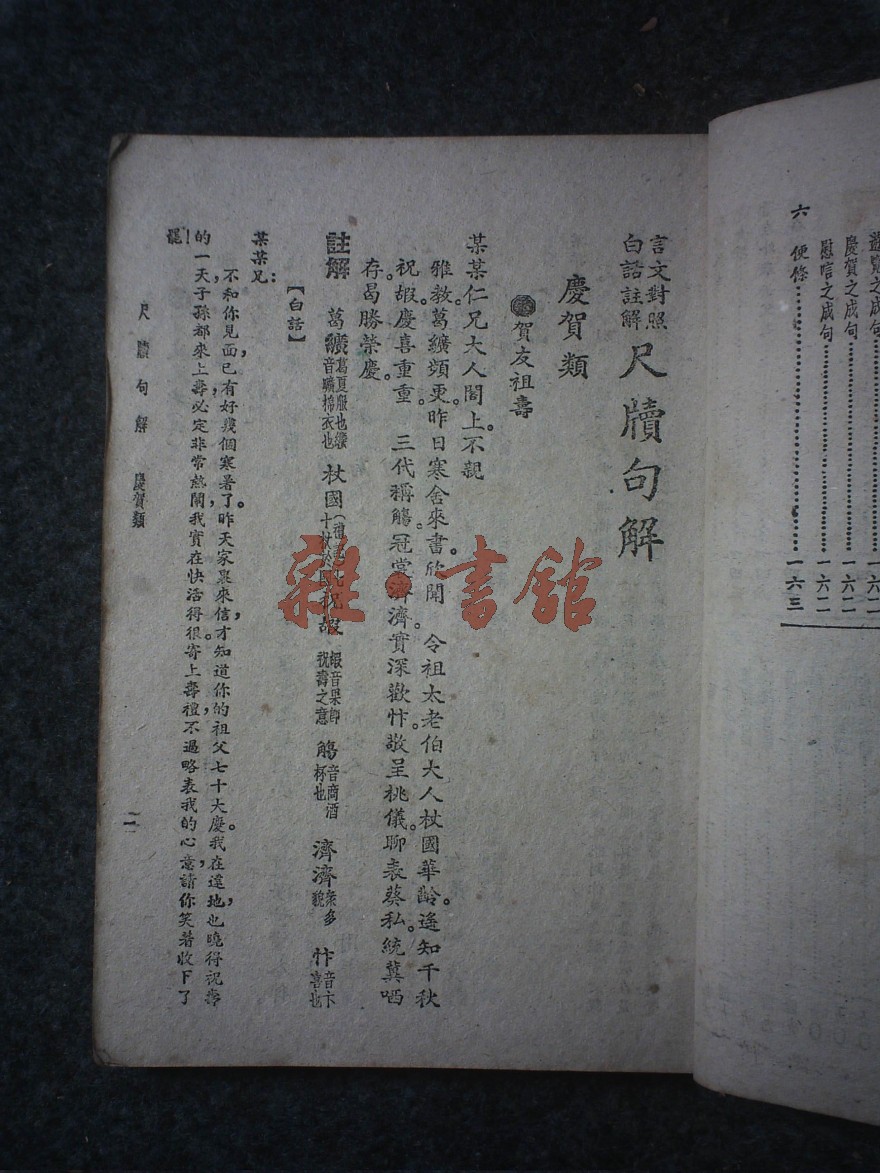 慶賀之成句……一六二
慰唁之成句……一六二
六 便條……一六三
言文對照
白話註解
尺牘句解
慶賀類
賀友祖壽
某某仁兄大人閣上。不親
雅教。葛纊頻更。昨日寒舍來書。欣聞 令祖太老伯大人。杖國華齡。遙知千秋
祝嘏。慶喜重重。三代稱觴。冠裳濟濟。實深歡忭。敬呈桃儀。聊表葵私。統冀哂
存。曷勝榮慶。
註解 葛纊 葛夏服也纊音曠棉衣也 杖國 十杖於國 祝嘏 嘏音果即祝壽之意 觴 音商酒杯也 濟濟 衆多貌 忭 音卞喜也
【白話】
某某兄：
不和你見面，已有好幾個寒暑了。昨天家裏來信，才知道你的祖父七十大慶。我在遠地，也曉得祝壽
的一天，子孫都來上壽，必定非常熱鬧，我實在快活得很。寄上壽禮，不過略表我的心意，請你笑着收下了
罷！
尺牘句解 慶賀類
二
雜·書館